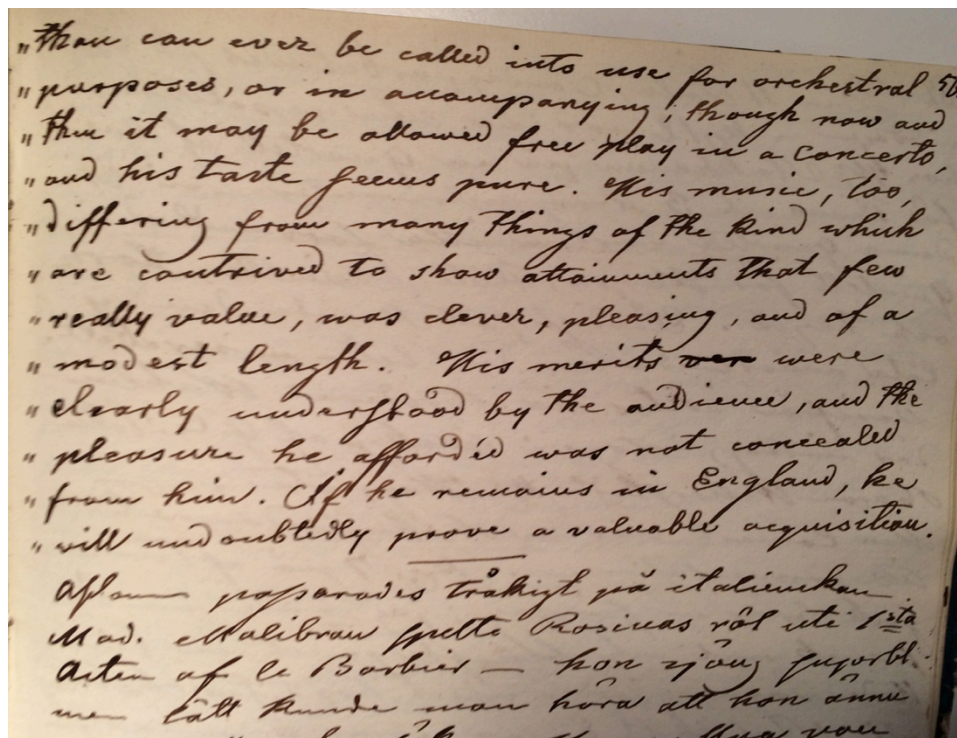 "than can ever be called into use for orchestral
"purposes, or in accompanying; though now and
"then it may be allowed free play in a concerto,
"and his taste seems pure. His music, too,
"differing from many things of the kind which
"are contrived to show attainments that few
"really value, was clever, pleasing, and of a
"modest length. His merits ver were
"clearly understood by the audience, and the
"pleasure he afforded was not concealed
"from him. If he remains in England, he
"will undoubtedly prove a valuable acquisition.
Aftonen passerades tråkigt på italienskan
Mad. Malibran spelte Rosinas rôl uti 1sta
Acten af le Barbier — hon sjöng superbt
men lätt kunde man höra att hon ännu